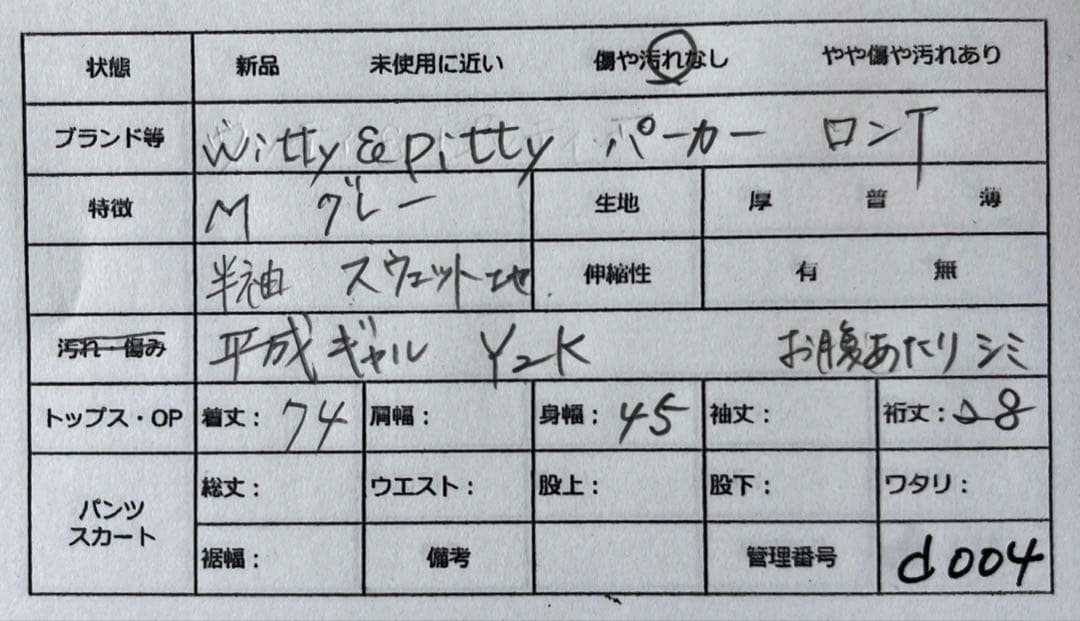 状態 新品 未使用に近い 傷や汚れなし やや傷や汚れあり
ブランド等 Witty&pitty パーカー ロンT
特徴 M グレー 生地 厚 普 薄
半袖 スウェット地 伸縮性 有 無
汚れ・傷み 平成ギャル Y2K お腹あたりシミ
トップス・OP 着丈： 74 肩幅： 身幅： 45 袖丈： 裄丈： 28
パンツ 総丈： ウエスト： 股上： 股下： ワタリ：
スカート
裾幅： 備考 管理番号 d004